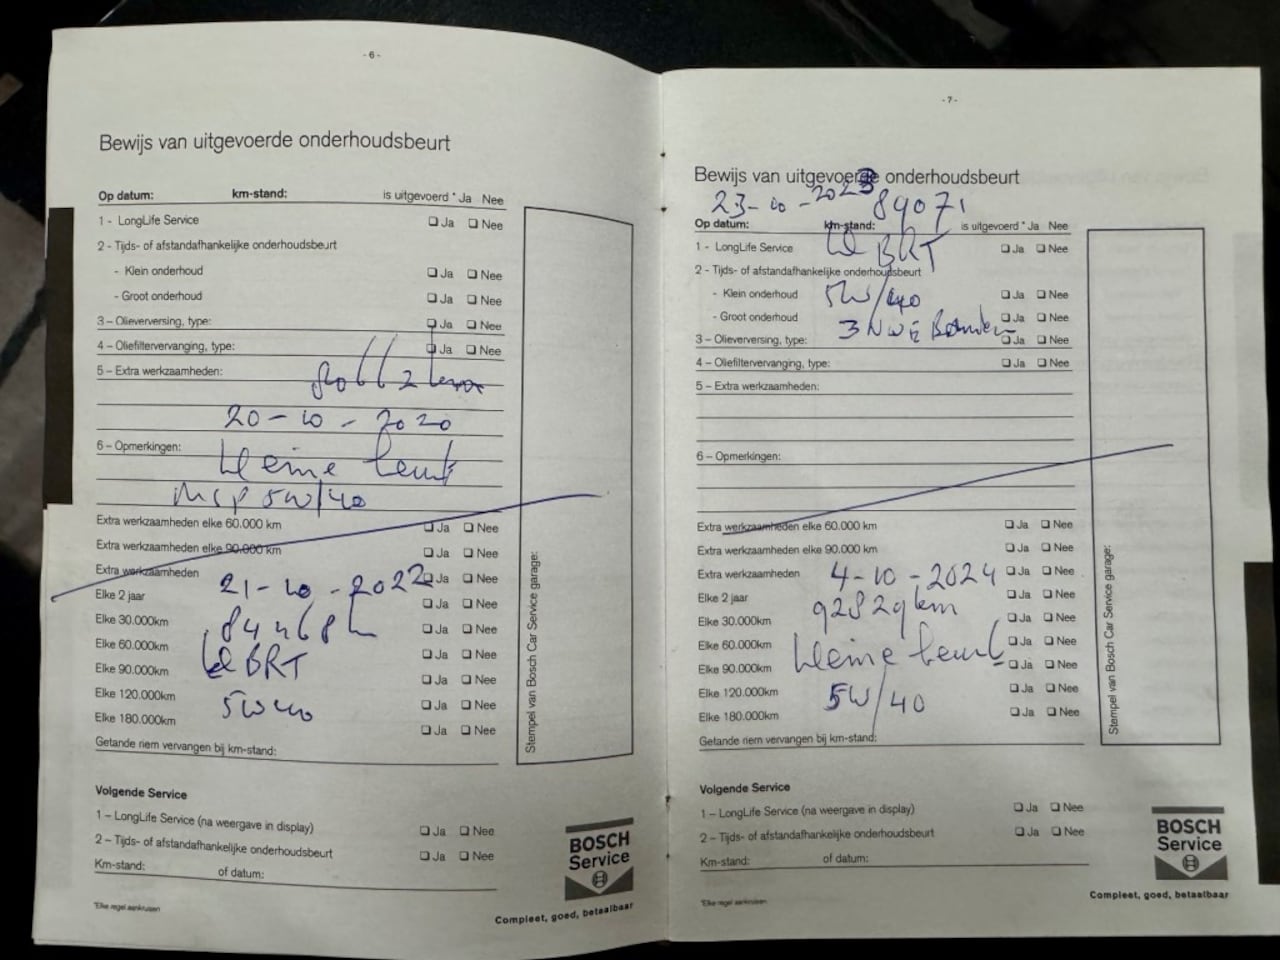 - 6 -
Bewijs van uitgevoerde onderhoudsbeurt
Op datum: km-stand: is uitgevoerd * Ja Nee
1 - LongLife Service ❑ Ja ❑ Nee
2 - Tijds- of afstandafhankelijke onderhoudsbeurt
- Klein onderhoud ❑ Ja ❑ Nee
- Groot onderhoud ❑ Ja ❑ Nee
3 – Olieverversing, type: ❑ Ja ❑ Nee
4 – Oliefiltervervanging, type: ❑ Ja ❑ Nee
5 – Extra werkzaamheden:
20-10-2020
6 – Opmerkingen:
kleine beurt
5W/40
Extra werkzaamheden elke 60.000 km ❑ Ja ❑ Nee
Extra werkzaamheden elke 90.000 km ❑ Ja ❑ Nee
Extra werkzaamheden ❑ Ja ❑ Nee
21-10-2022
Elke 2 jaar ❑ Ja ❑ Nee
Elke 30.000km ❑ Ja ❑ Nee
Elke 60.000km ❑ Ja ❑ Nee
kl BRT
Elke 90.000km ❑ Ja ❑ Nee
Elke 120.000km ❑ Ja ❑ Nee
5W40
Elke 180.000km ❑ Ja ❑ Nee
Getande riem vervangen bij km-stand:
Stempel van Bosch Car Service garage:
Volgende Service
1 – LongLife Service (na weergave in display) ❑ Ja ❑ Nee
2 – Tijds- of afstandafhankelijke onderhoudsbeurt ❑ Ja ❑ Nee
Km-stand: of datum:
BOSCH
Service
*Elke regel aankruisen
Compleet, goed, betaalbaar
- 7 -
Bewijs van uitgevoerde onderhoudsbeurt
23-10-2023 89071
Op datum: km-stand: is uitgevoerd * Ja Nee
kl BRT
1 - LongLife Service ❑ Ja ❑ Nee
2 - Tijds- of afstandafhankelijke onderhoudsbeurt
- Klein onderhoud 5W/40 ❑ Ja ❑ Nee
- Groot onderhoud ❑ Ja ❑ Nee
3 Nwe Banden
3 – Olieverversing, type: ❑ Ja ❑ Nee
4 – Oliefiltervervanging, type: ❑ Ja ❑ Nee
5 – Extra werkzaamheden:
6 – Opmerkingen:
Extra werkzaamheden elke 60.000 km ❑ Ja ❑ Nee
Extra werkzaamheden elke 90.000 km ❑ Ja ❑ Nee
Extra werkzaamheden 4-10-2024 ❑ Ja ❑ Nee
Elke 2 jaar 92829km ❑ Ja ❑ Nee
Elke 30.000km ❑ Ja ❑ Nee
Elke 60.000km ❑ Ja ❑ Nee
kleine beurt
Elke 90.000km ❑ Ja ❑ Nee
Elke 120.000km ❑ Ja ❑ Nee
5W/40
Elke 180.000km ❑ Ja ❑ Nee
Getande riem vervangen bij km-stand:
Stempel van Bosch Car Service garage:
Volgende Service
1 – LongLife Service (na weergave in display) ❑ Ja ❑ Nee
2 – Tijds- of afstandafhankelijke onderhoudsbeurt ❑ Ja ❑ Nee
Km-stand: of datum:
BOSCH
Service
*Elke regel aankruisen
Compleet, goed, betaalbaar